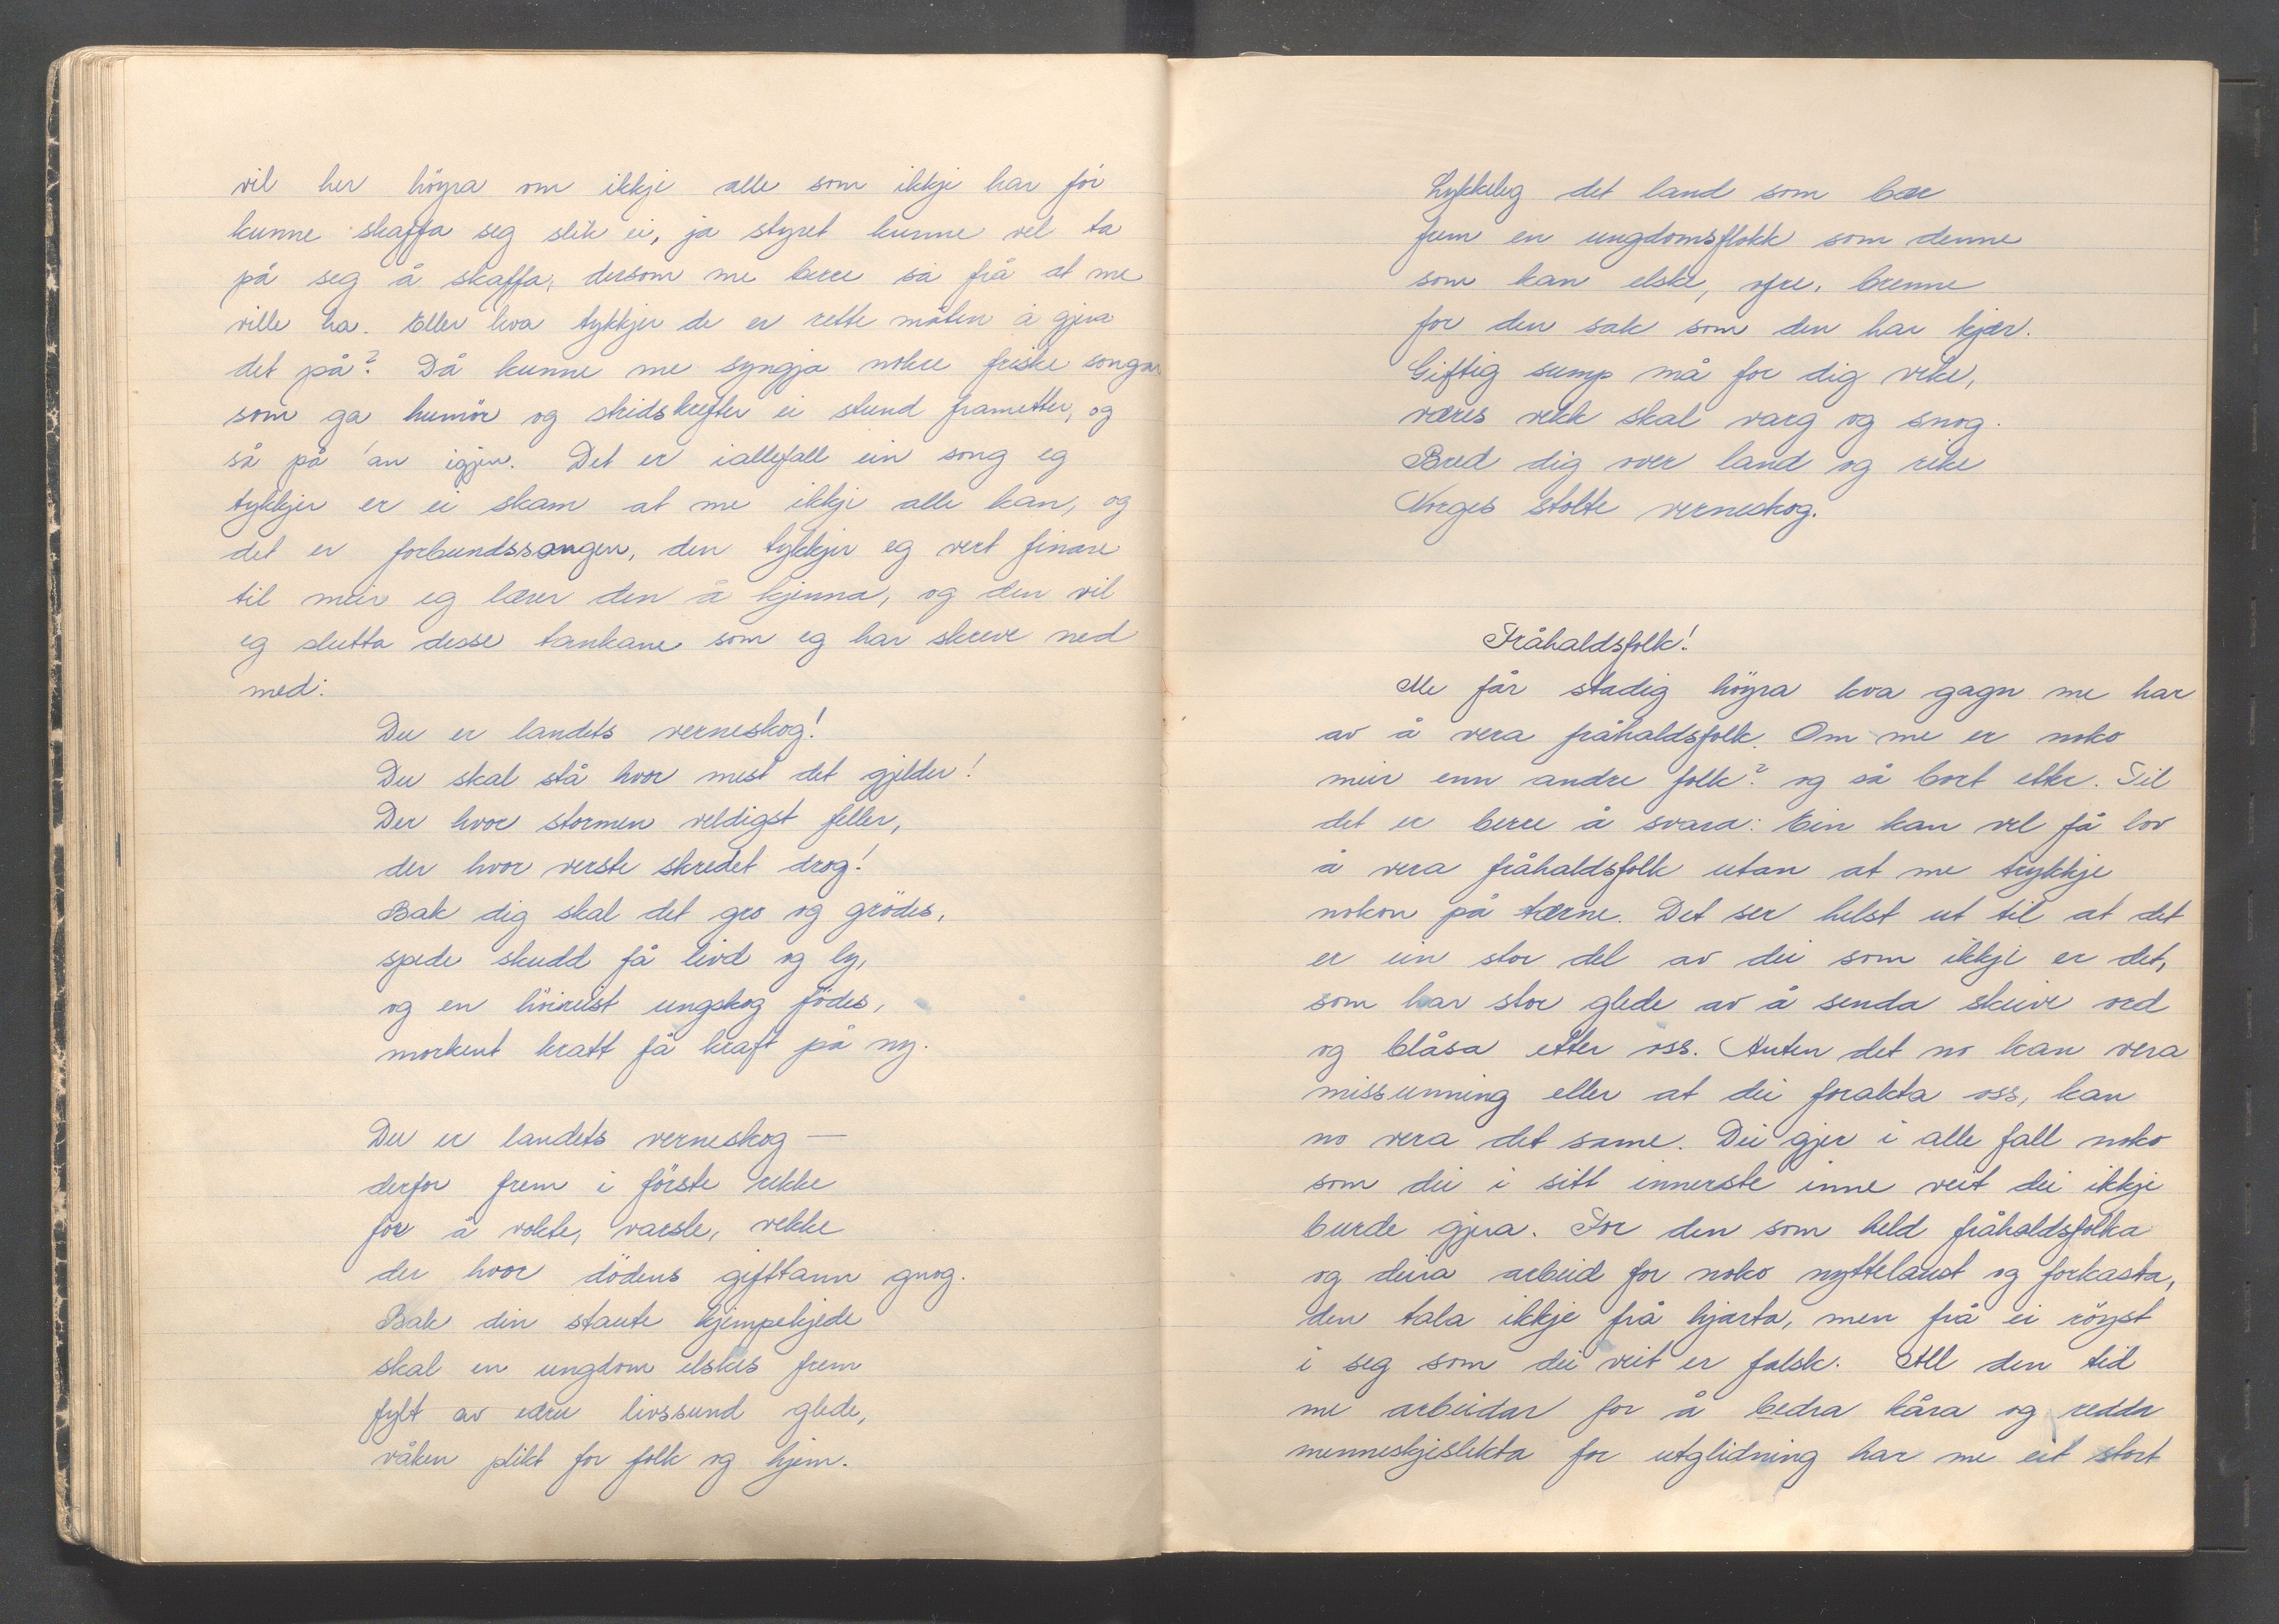 vil her höyra om ikkje alle som ikkje har för
kunne skaffa seg slik ei, ja styret kunne vel ta
på seg å skaffa, dersom me berre sa frå at me
ville ha. Eller kva tykkjer de er rette måten å gjera
det på? Då kunne me syngja nokre friske songar
som ga humör og stridskrefter ei stund frametter, og
så på 'an igjen. Det er iallefall ein song eg
tykkjer er ei skam at me ikkje alle kan, og
det er forbundssangen, den tykkjer eg vert finare
til meir eg lærer den å kjenna, og den vil
eg slutta desse tankane som eg har skreve ned
med:
Du er landets verneskog!
Du skal stå hvor mest det gjelder!
Der hvor stormen veldigst feller,
der hvor verste skredet drog!
Bak dig skal det gro og grödes,
spede skudd få livd og ly,
og en höireist ungskog födes,
morkent kratt få kraft på ny.
Du er landets verneskog —
derfor frem i förste rekke
for å vokte, varsle, vekke
der hvor dödens gifttann gnog.
Bak din staute kjempekjede
skal en ungdom elskes frem
fylt av edru livssund glede,
våken plikt for folk og hjem.
Lykkelig det land som bær
frem en ungdomsflokk som denne
som kan elske, ofre, brenne
for den sak som den har kjær.
Giftig sump må for dig vike,
væres vekk skal varg og snog.
Bred dig over land og rike
Norges stolte verneskog.
Fråhaldsfolk!
Me får stadig höyra kva gagn me har
av å vera fråhaldsfolk. Om me er noko
meir enn andre folk? og så bort etter. Til
det er berre å svara: Ein kan vel få lov
å vera fråhaldsfolk utan at me trykkje
nokon på tærne. Det ser helst ut til at det
er ein stor del av dei som ikkje er det,
som har stor glede av å senda skeive ord
og blåsa etter oss. Anten det no kan vera
missunning eller at dei forakta oss, kan
no vera det same. Dei gjer i alle fall noko
som dei i sitt innerste inne veit dei ikkje
burde gjera. For den som held fråhaldsfolka
og deira arbeid for noko nyttelaust og forkasta,
den tala ikkje frå hjarta, men frå ei röyst
i seg som dei veit er falsk. All den tid
me arbeidar for å bedra kåra og redda
menneskjeslekta for utglidning har me eit stort